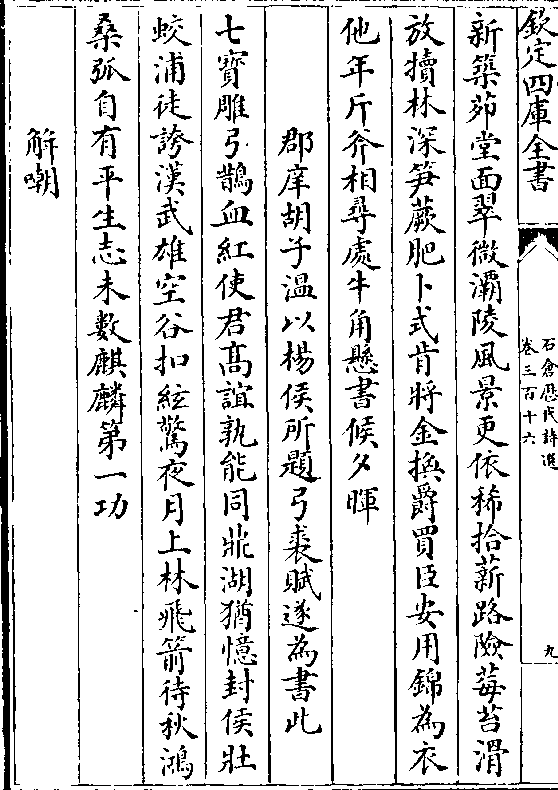 欽定四庫全書
石倉歷代詩選
卷三百十六
九
新築茆堂面翠微灞陵風景更依稀拾薪路險莓苔滑
放犢林深笋蕨肥卜式肯將金換爵買臣安用錦為衣
他年斤斧相尋處牛角懸書候夕暉
郡庠胡子溫以楊侯所題弓裘賦遂為書此
七寶雕弓鵲血紅使君髙誼孰能同鼎湖猶憶封侯壯
蛟浦徒誇漢武雄空谷扣絃驚夜月上林飛箭待秋鴻
桑弧自有平生志未數麒麟第一功
解嘲